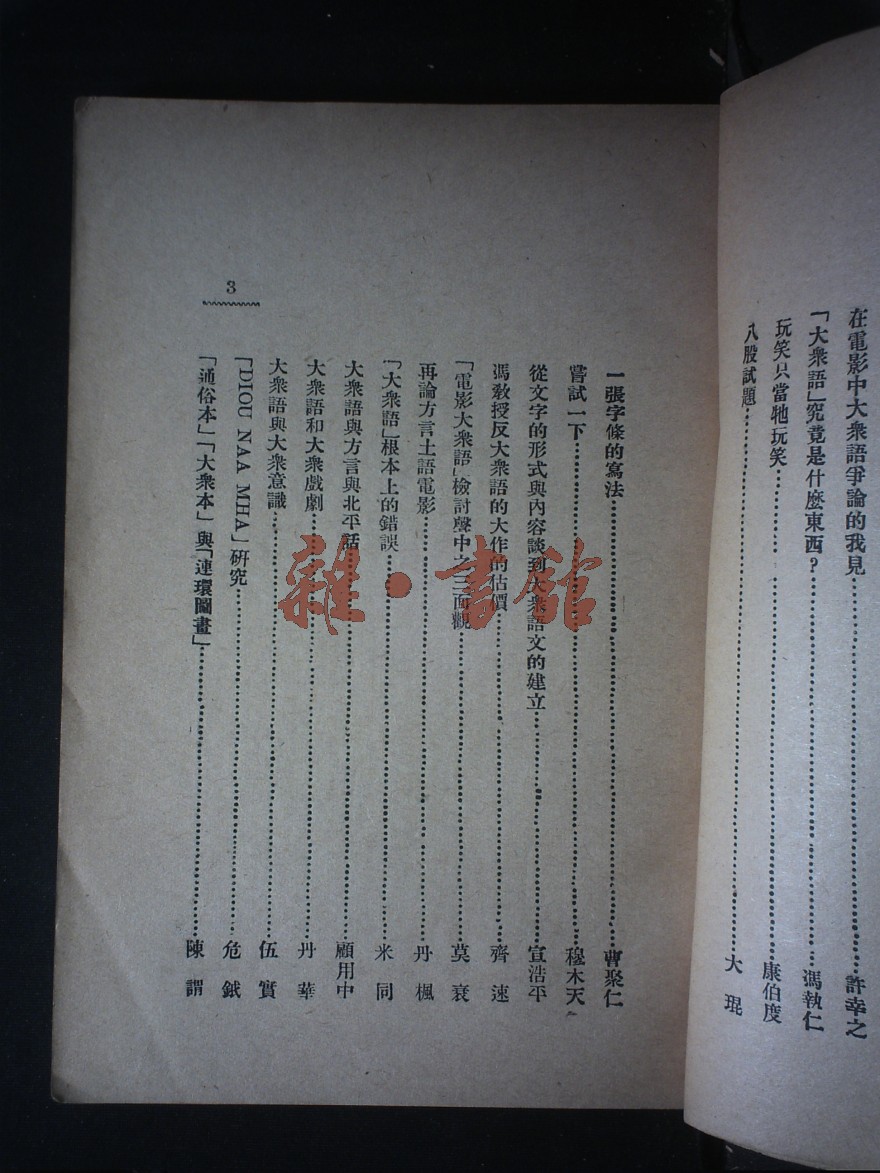 在電影中大衆語爭論的我見……許幸之
「大衆語」究竟是什麼東西?……馮執仁
玩笑只當牠玩笑……康伯度
八股試題……大琨
一張字條的寫法……曹聚仁
嘗試一下……穆木天
從文字的形式與內容談到大衆語文的建立……宣浩平
馮敎授反大衆語的大作的估價……齊速
「電影大衆語」檢討聲中之三面觀……莫衰
再論方言土語電影……丹楓
「大衆語」根本上的錯誤……米同
大衆語與方言與北平話……顧用中
大衆語和大衆戲劇……丹華
大衆語與大衆意識……伍實
「DIOU NAA MHA」研究……危鉞
「通俗本」「大衆本」與「連環圖畫」……陳謂
3
雜·書館